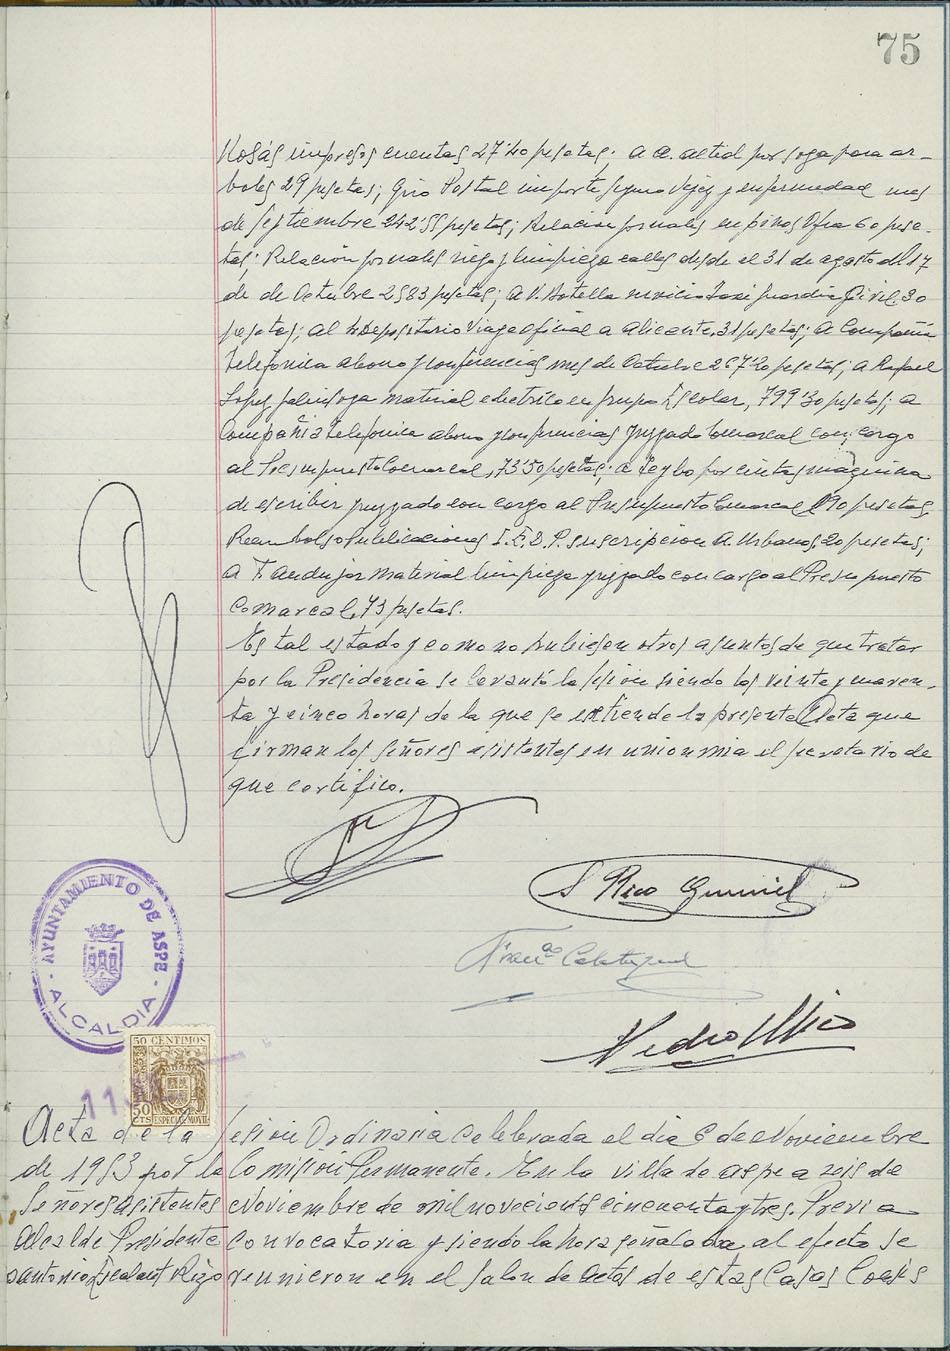 75
Rosás impresos cuentas 27'40 pesetas; a por soga para ar-
boles 29 pesetas; Giro Postal importe seguro vejez y enfermedad mes
de Septiembre 242'55 pesetas; Relación jornales en pinos Ofra 60 pese-
tas; Relacion jornales riego y limpieza calles desde el 31 de agosto al 17
de de Octubre 2583 pesetas; a V. Botella servicio Taxi guardia Civil, 30
pesetas; al Depositario Viaje oficial a alicante, 31 pesetas; a Compañia
Telefonica abono y conferencias mes de Octubre 267'20 pesetas; a Rafael
Lopez material electrico en grupo Escolar, 799'30 pesetas; a
Compañia Telefonica abono y conferencias juzgado Comarcal con cargo
al Presupuesto Comarcal, 73'50 pesetas; a por cintas maquina
de escribir juzgado con cargo al Presupuesto Comarcal 190 pesetas,
Reembolso Publicaciones I.E.D.P. suscripcion A. Urbanos, 20 pesetas;
a F. andujar material limpieza juzgado con cargo al Presupuesto
Comarcal, 73 pesetas.
En tal estado y como no hubiesen otros asuntos de que tratar
por la Presidencia se levantó la sesión siendo las veinte y cuaren-
ta y cinco horas de la que se extiende la presente Acta que
firman los señores asistentes en union mia el secretario de
que certifico.
S Rico
Franco Calatayud
Pedro
AYUNTAMIENTO DE ASPE
ALCALDIA
50 CENTIMOS
50 CTS ESPECIAL MOVIL
11
Acta de la Sesión Ordinaria celebrada el dia 6 de Noviembre
de 1953 por la Comisión Permanente. En la villa de aspe a seis de
Señores asistentes Noviembre de mil novecientos cincuenta y tres. Previa
Alcalde Presidente convocatoria y siendo la hora señalada, al efecto se
antonio Rizo reunieron en el salon de actos de estas Casas